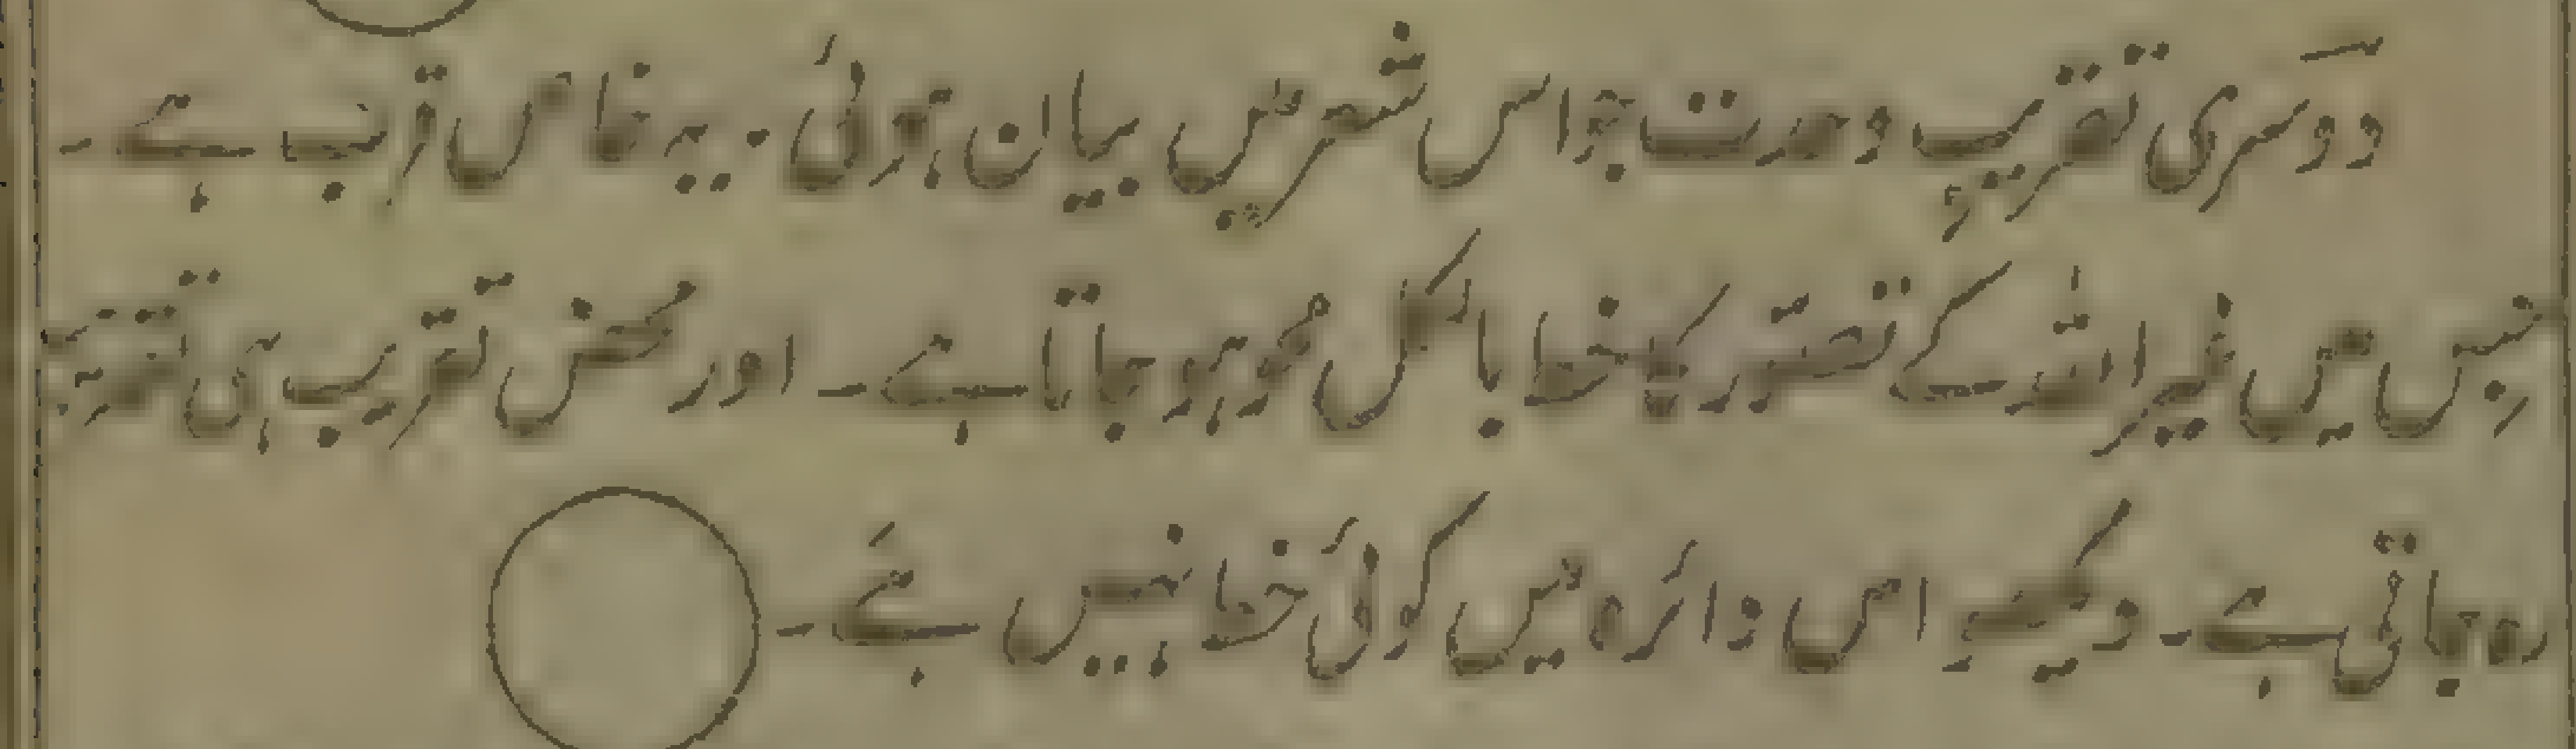 دوسری تقریبِ وحدت جو اس شعر میں بیان ہوئی۔ یہ خاص قرب ہے۔
جس میں غیر اللہ کے تصوّر کا خط بالکل محو ہو جاتا ہے۔ اور محض تقریب ہی
رہ جاتی ہے۔ دیکھو اس دائرہ میں کوئی خط نہیں ہے۔